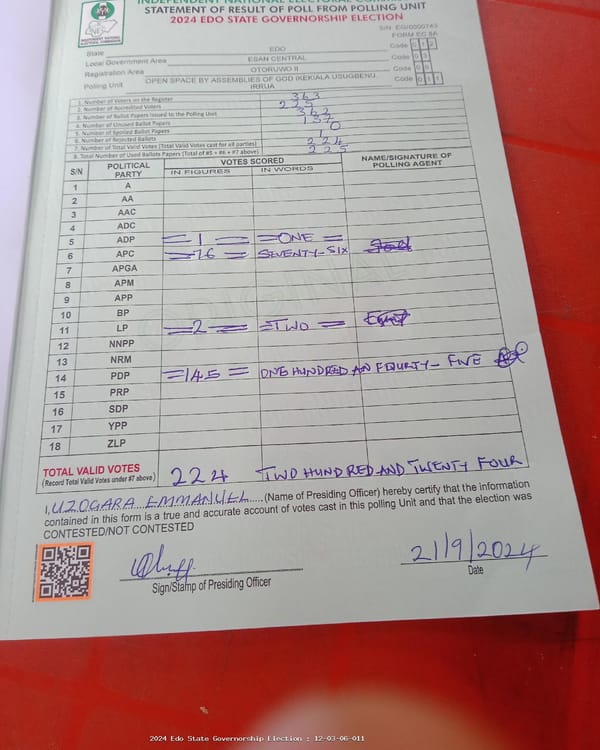 INDEPENDENT NATIONAL ELECTORAL COMM
STATEMENT OF RESULT OF POLL FROM POLLING UNIT
2024 EDO STATE GOVERNORSHIP ELECTION
S/N: EG/0000743
FORM EC 8A
State EDO Code 012
Local Government Area ESAN CENTRAL Code 03
Registration Area OTORUWO II Code 06
Polling Unit OPEN SPACE BY ASSEMBLIES OF GOD IKEKIALA USUGBENU, IRRUA Code 011
1. Number of Voters on the Register 363
2. Number of Accredited Voters 225
3. Number of Ballot Papers Issued to the Polling Unit 363
4. Number of Unused Ballot Papers 137
5. Number of Spoiled Ballot Papers
6. Number of Rejected Ballots
7. Number of Total Valid Votes (Total Valid Votes cast for all parties) 224
8. Total Number of Used Ballots Papers (Total of #5 + #6 + #7 above) 225
S/N POLITICAL PARTY VOTES SCORED NAME/SIGNATURE OF POLLING AGENT
IN FIGURES IN WORDS
1 A
2 AA
3 AAC
4 ADC
5 ADP =1= =ONE=
6 APC =76= SEVENTY-SIX
7 APGA
8 APM
9 APP
10 BP
11 LP =2= =TWO=
12 NNPP
13 NRM
14 PDP =145= ONE HUNDRED AN FOURTY-FIVE
15 PRP
16 SDP
17 YPP
18 ZLP
TOTAL VALID VOTES 224 TWO HUNDRED AND TWENTY FOUR
(Record Total Valid Votes under #7 above)
I, UZOGARA EMMANUEL (Name of Presiding Officer) hereby certify that the information
contained in this form is a true and accurate account of votes cast in this polling Unit and that the election was
CONTESTED/NOT CONTESTED
21/9/2024
Sign/Stamp of Presiding Officer Date
2024 Edo State Governorship Election : 12-03-06-011